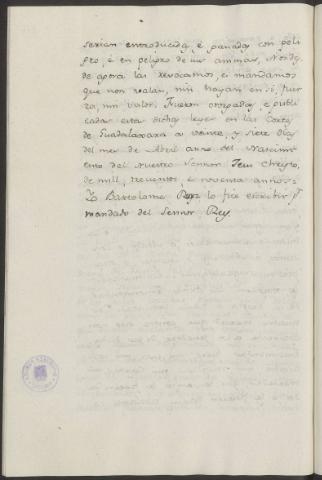 serian entroducidas, e pasadas con peli
gro, è en peligro de sus animas, Nos des
de agora las revocamos, è mandamos
que non valan, nin hayan en sí, fuer
za, nin valor. Fueron otorgadas, e publi
cadas estas dichas leyes en las Cortes
de Guadalaxara a veinte, y siete dias
del mes de Abril anno del Nascimi
ento del Nuestro Sennor Jesu Christo,
de mill, trecientos, è noventa annos.=
Yo Bartolome Rrz lo fice escribir pr
mandado del Sennor Rey.